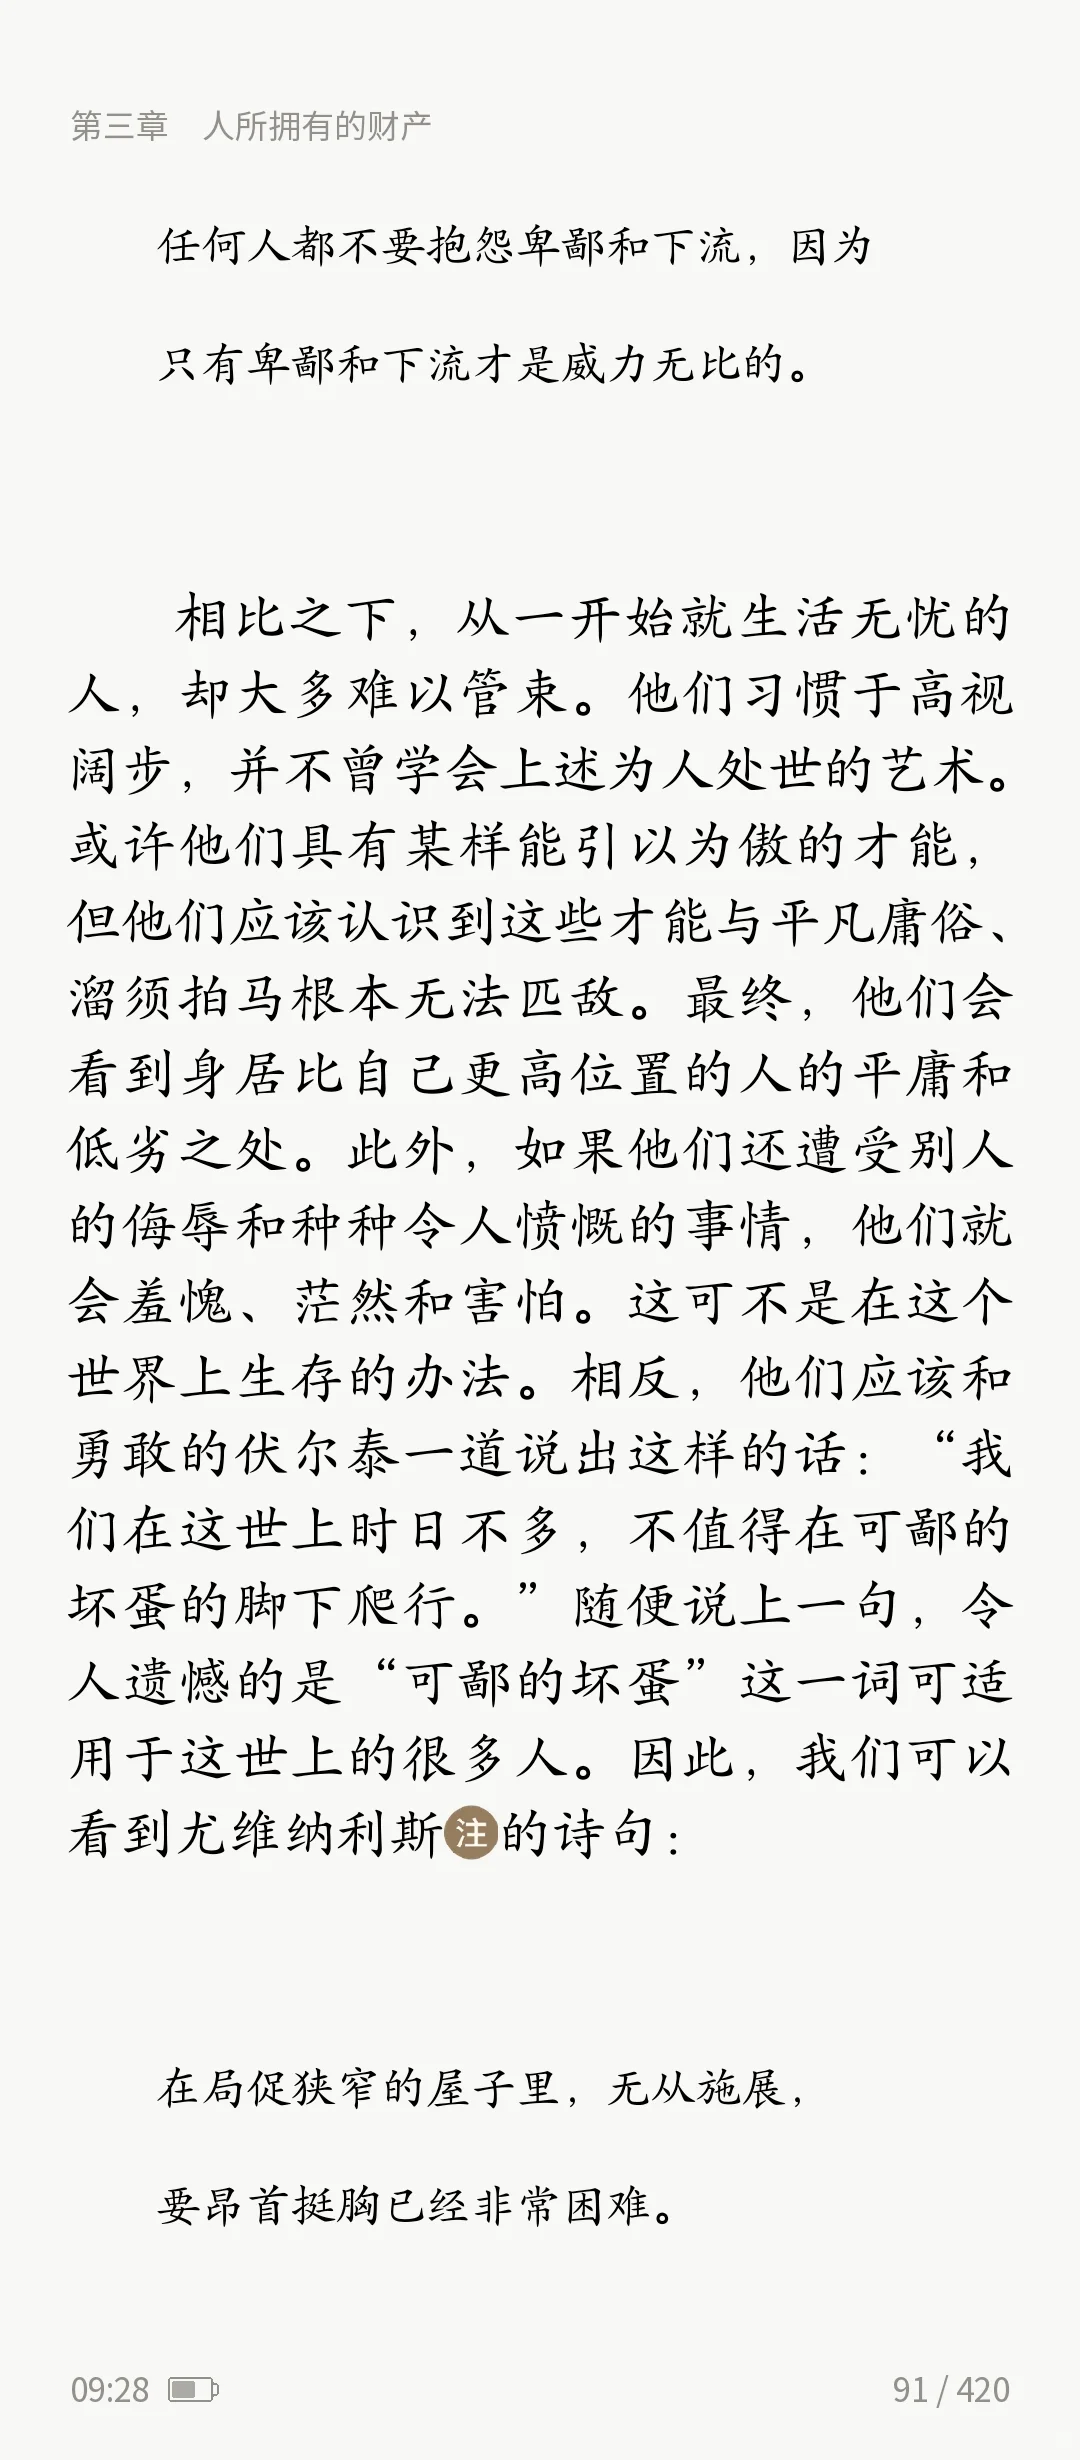 第三章 人所拥有的财产
任何人都不要抱怨卑鄙和下流，因为
只有卑鄙和下流才是威力无比的。
相比之下，从一开始就生活无忧的
人，却大多难以管束。他们习惯于高视
阔步，并不曾学会上述为人处世的艺术。
或许他们具有某样能引以为傲的才能，
但他们应该认识到这些才能与平凡庸俗、
溜须拍马根本无法匹敌。最终，他们会
看到身居比自己更高位置的人的平庸和
低劣之处。此外，如果他们还遭受别人
的侮辱和种种令人愤慨的事情，他们就
会羞愧、茫然和害怕。这可不是在这个
世界上生存的办法。相反，他们应该和
勇敢的伏尔泰一道说出这样的话：“我
们在这世上时日不多，不值得在可鄙的
坏蛋的脚下爬行。”随便说上一句，令
人遗憾的是“可鄙的坏蛋”这一词可适
用于这世上的很多人。因此，我们可以
看到尤维纳利斯注的诗句：
在局促狭窄的屋子里，无从施展，
要昂首挺胸已经非常困难。
09:28 91 / 420